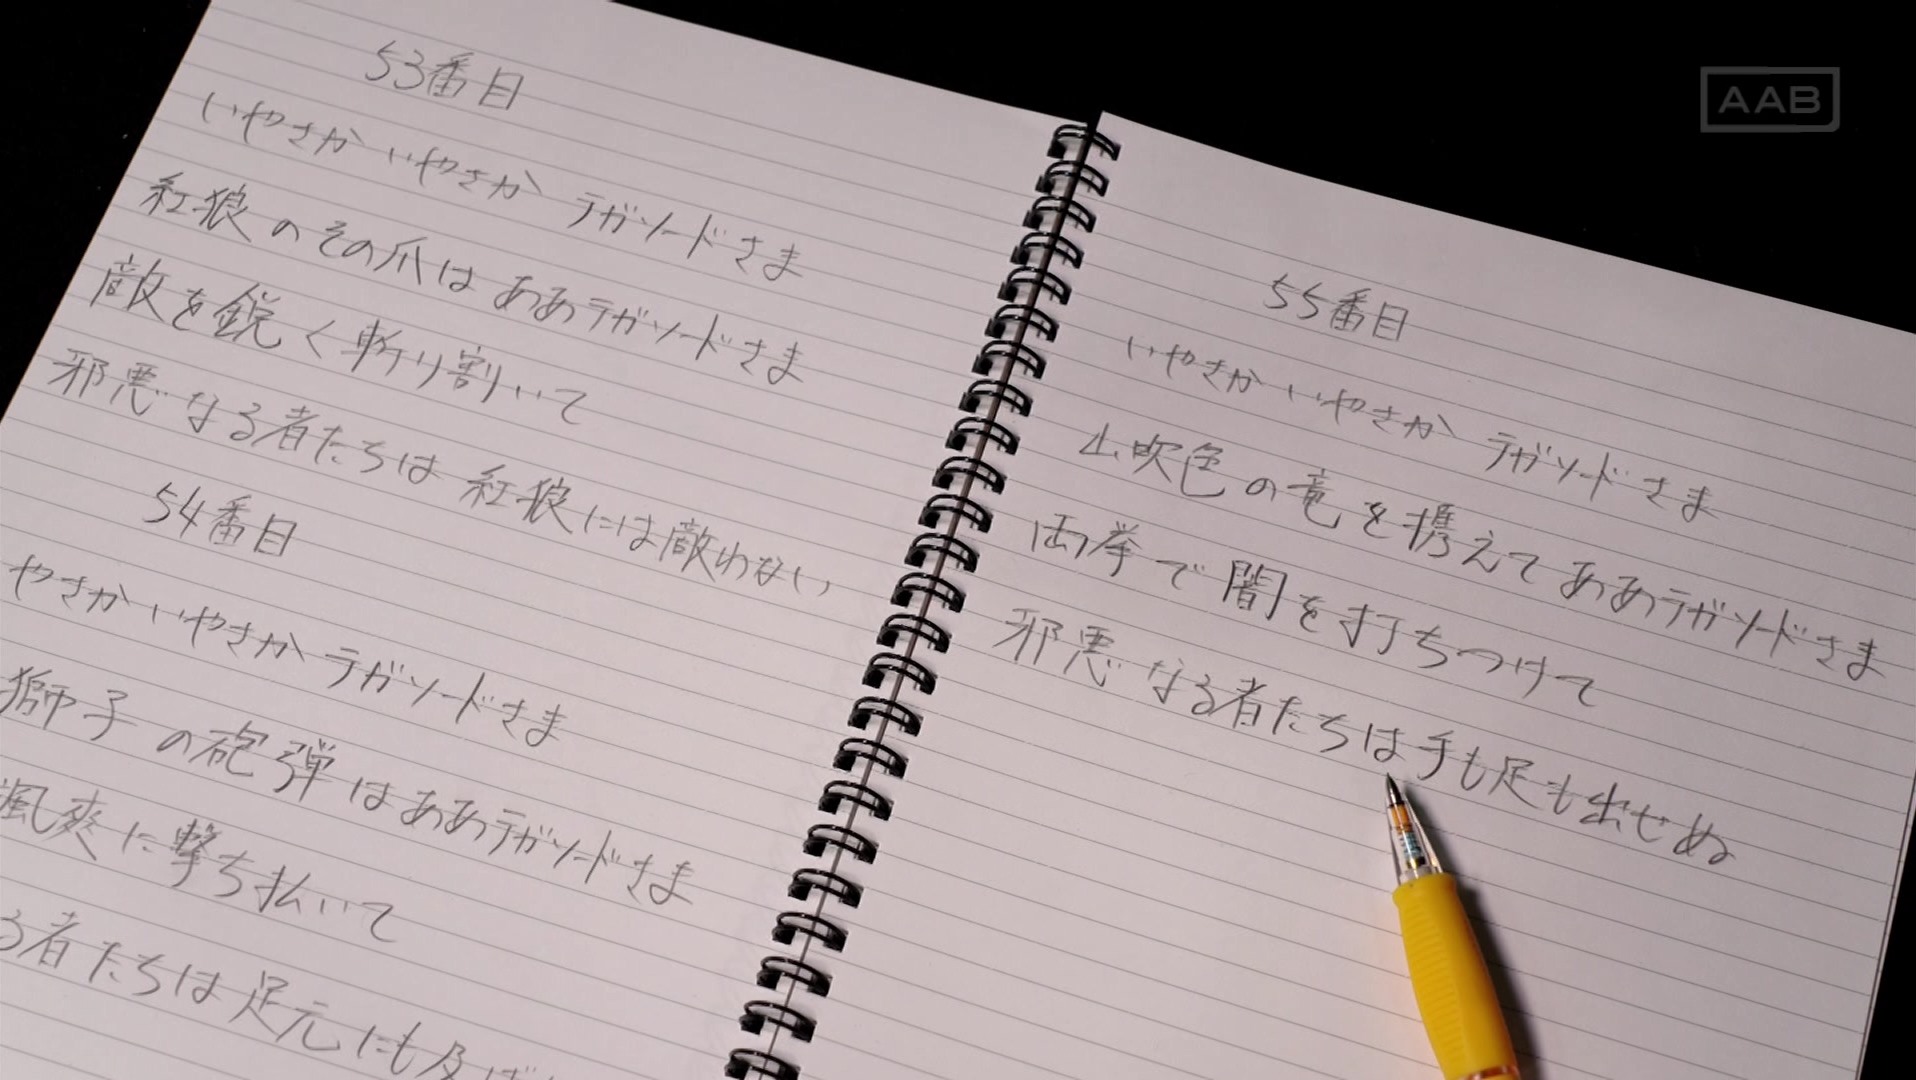 53番目
いやさか いやさか テガソードさま
紅狼のその爪は ああテガソードさま
敵を鋭く斬り割いて
邪悪なる者たちは 紅狼には敵わない
54番目
やさか いやさか テガソードさま
獅子の砲弾は ああテガソードさま
颯爽に撃ち払いて
る者たちは足元にも及ば
55番目
いやさか いやさか テガソードさま
山吹色の竜を携えて ああテガソードさま
両拳で闇を打ちつけて
邪悪なる者たちは手も足も出せぬ
AAB